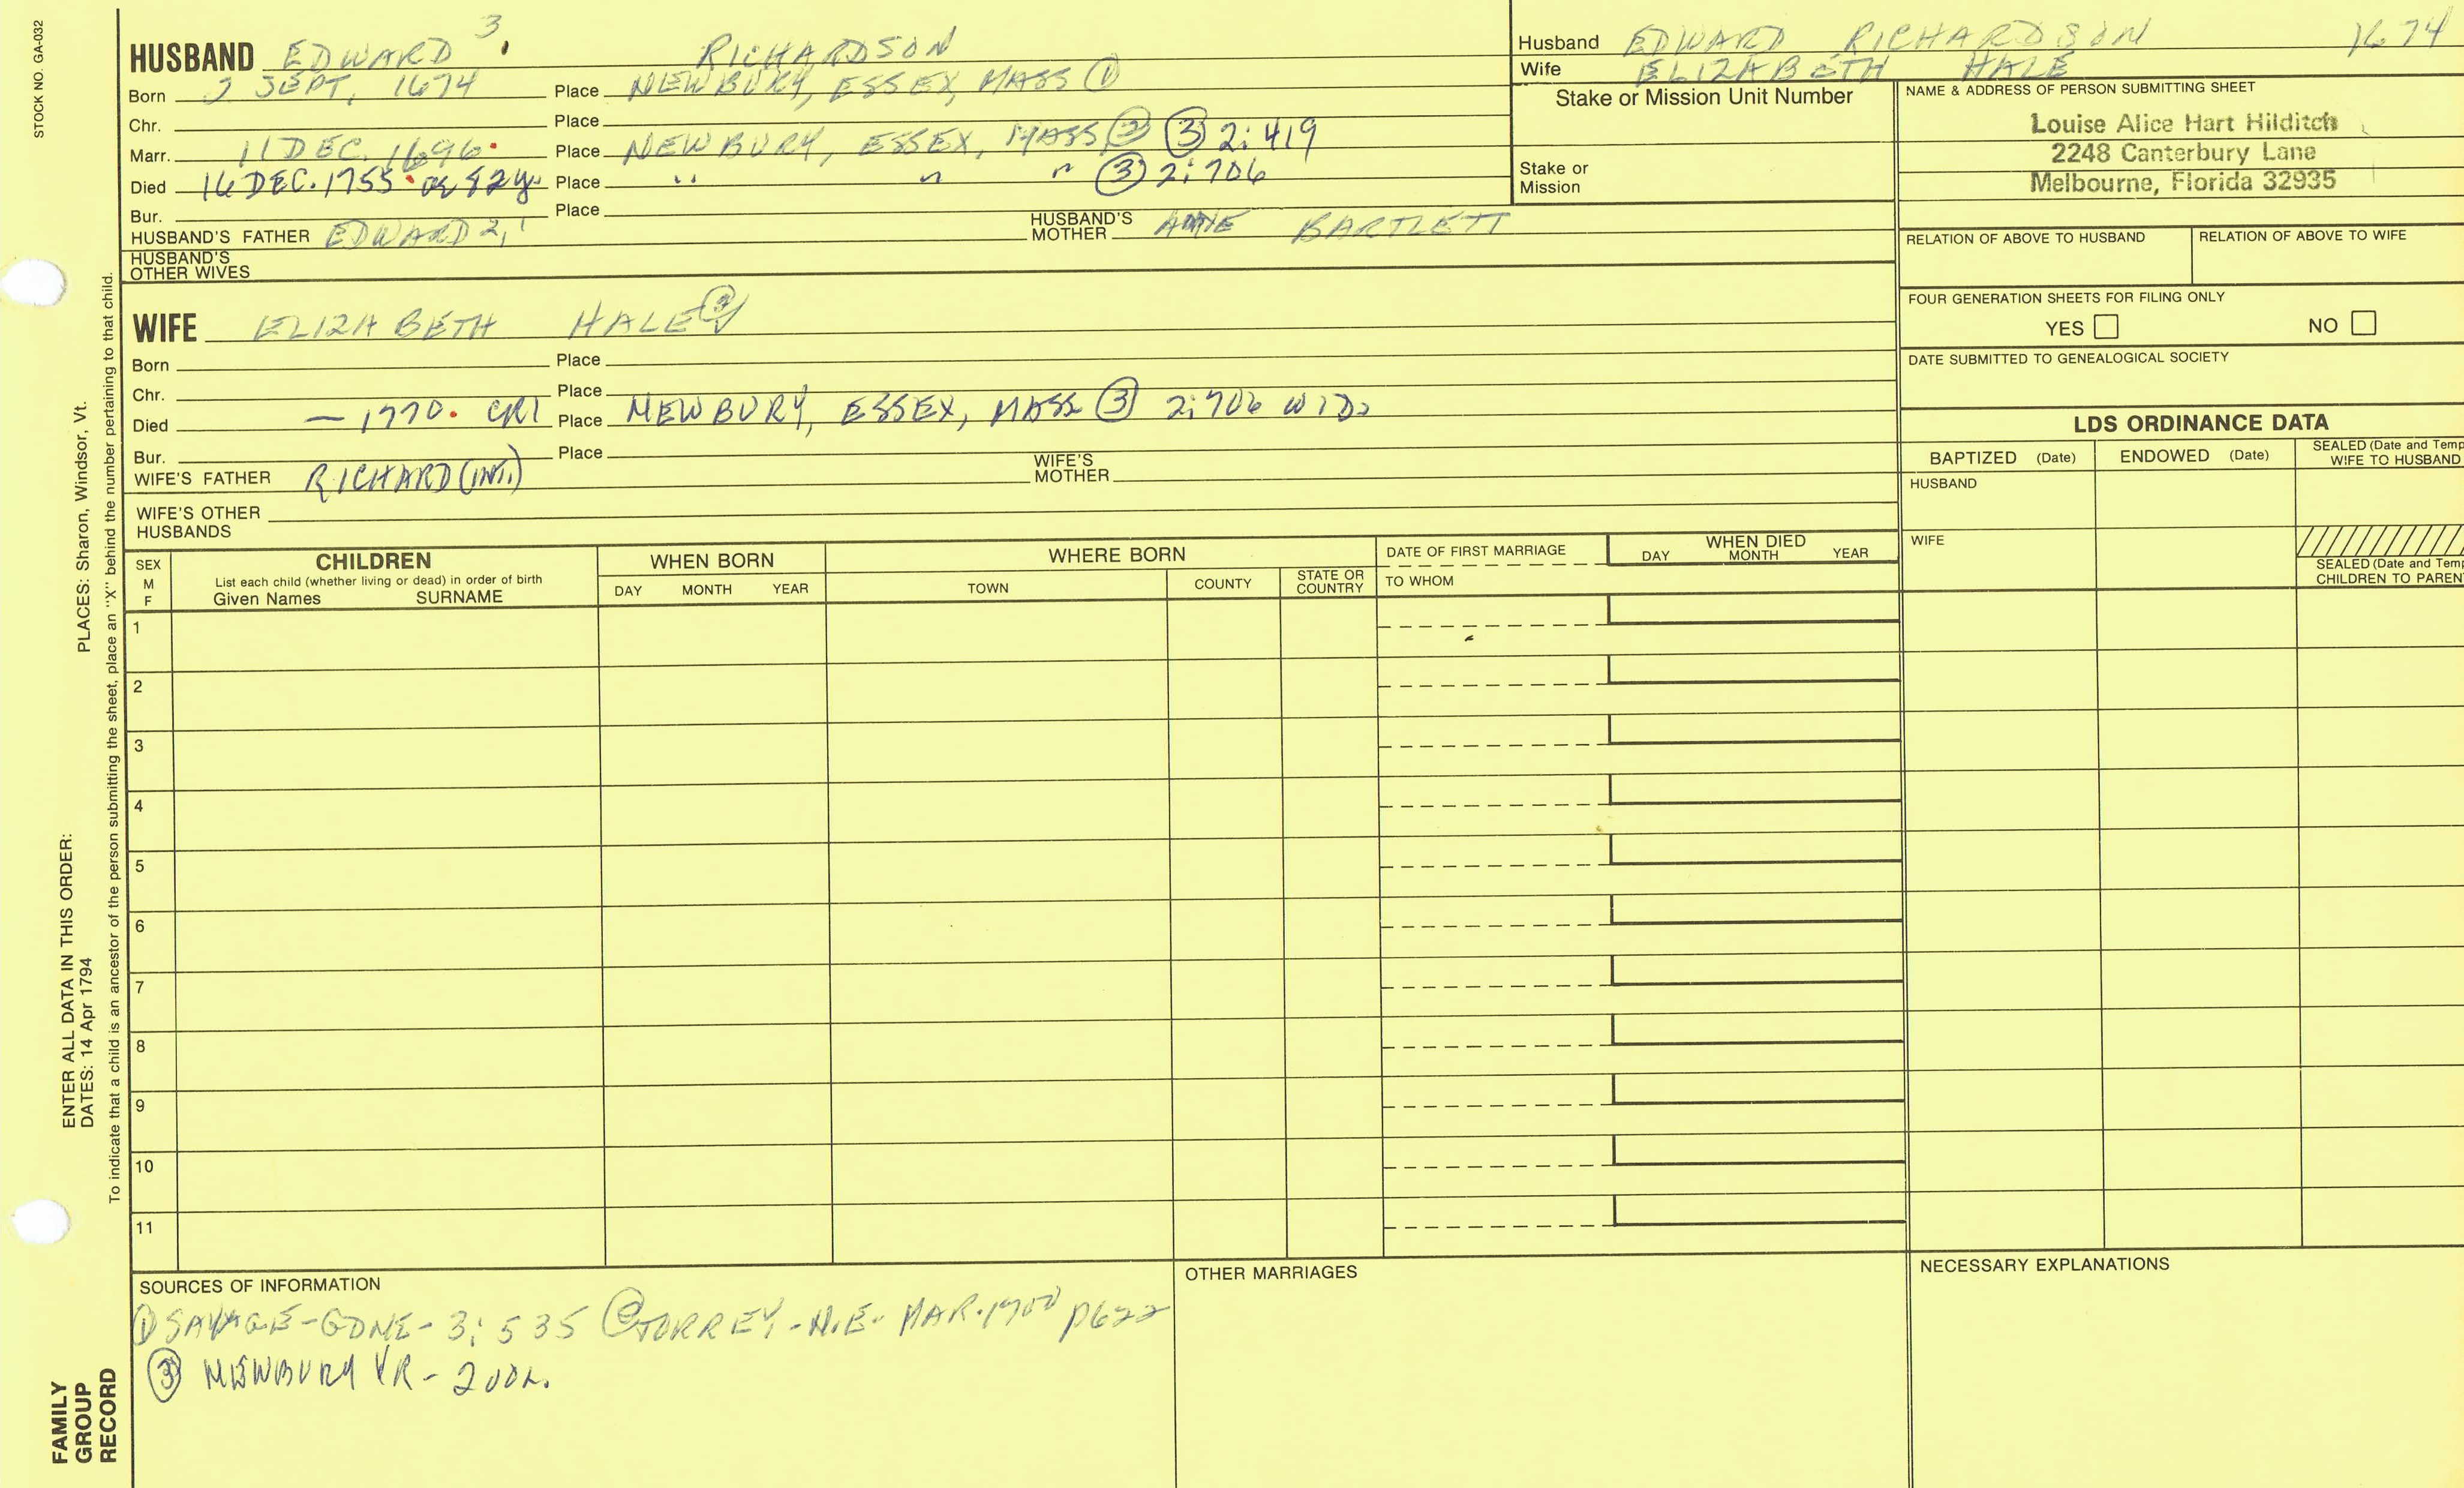 STOCK NO. GA-032
HUSBAND EDWARD 3, RICHARDSON
Born 2 SEPT, 1674 Place NEWBURY, ESSEX, MASS ①
Chr. Place
Marr. 11 DEC. 1696. Place NEWBURY, ESSEX, MASS ② ③ 2:419
Died 16 DEC. 1755. ae 82y. Place " " " ③ 2:706
Bur. Place
HUSBAND'S FATHER EDWARD 2,1 HUSBAND'S MOTHER ANNE BARTLETT
HUSBAND'S OTHER WIVES
Husband EDWARD RICHARDSON 1674
Wife ELIZABETH HALE
Stake or Mission Unit Number
Stake or Mission
NAME & ADDRESS OF PERSON SUBMITTING SHEET
Louise Alice Hart Hilditch
2248 Canterbury Lane
Melbourne, Florida 32935
RELATION OF ABOVE TO HUSBAND RELATION OF ABOVE TO WIFE
FOUR GENERATION SHEETS FOR FILING ONLY
YES NO
DATE SUBMITTED TO GENEALOGICAL SOCIETY
WIFE ELIZABETH HALE
Born Place
Chr. Place
Died — 1770. CR1 Place NEWBURY, ESSEX, MASS ③ 2:706 WID.
Bur. Place
WIFE'S FATHER RICHARD (INT.) WIFE'S MOTHER
WIFE'S OTHER HUSBANDS
LDS ORDINANCE DATA
BAPTIZED (Date) ENDOWED (Date) SEALED (Date and Temp
WIFE TO HUSBAND
HUSBAND
WIFE
SEALED (Date and Temp
CHILDREN TO PAREN
SEX
M
F
CHILDREN
List each child (whether living or dead) in order of birth
Given Names SURNAME
WHEN BORN
DAY MONTH YEAR
WHERE BORN
TOWN COUNTY STATE OR COUNTRY
DATE OF FIRST MARRIAGE
TO WHOM
WHEN DIED
DAY MONTH YEAR
1
2
3
4
5
6
7
8
9
10
11
SOURCES OF INFORMATION
① SAVAGE-GDNE-3:535 ② TORREY-N.E. MAR.1700 p622
③ NEWBURY VR-2
OTHER MARRIAGES
NECESSARY EXPLANATIONS
ENTER ALL DATA IN THIS ORDER:
DATES: 14 Apr 1794 PLACES: Sharon, Windsor, Vt.
To indicate that a child is an ancestor of the person submitting the sheet, place an "X" behind the number pertaining to that child.
FAMILY
GROUP
RECORD